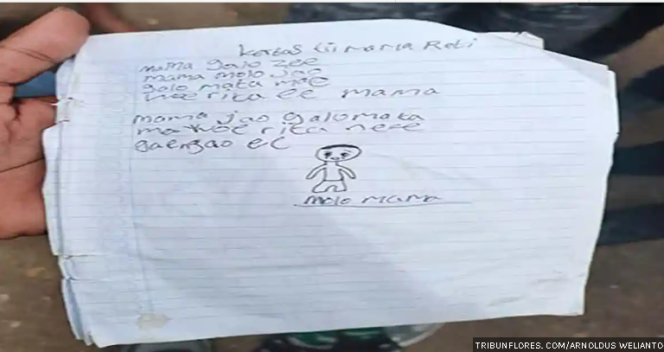 Kertas Tii mama Reti
mama galo zee
mama molo ja'o
galo mata mae
rita ee mama
mama jao galo mata
mae rita ne'e
gae ngao ee
molo mama
TRIBUNFLORES.COM/ARNOLDUS WELIANTO